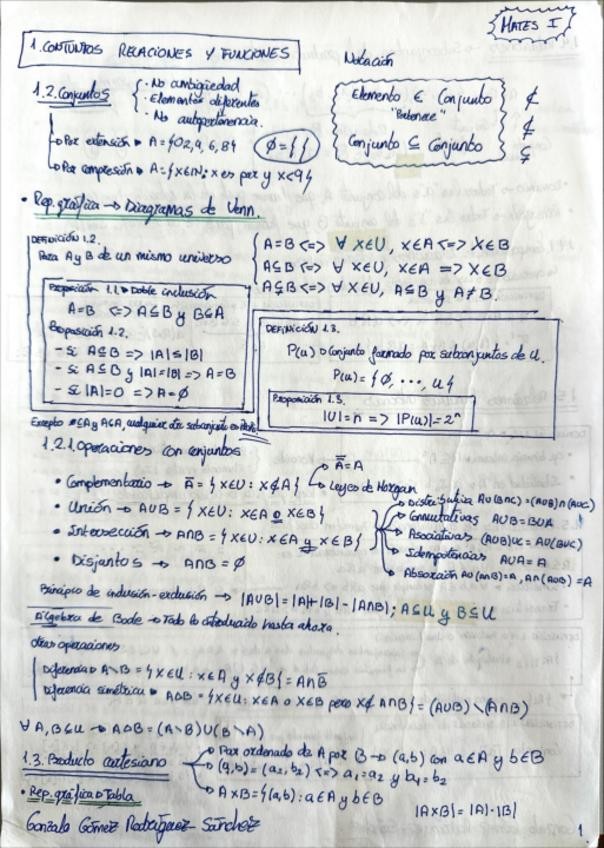 MATES I
1. CONJUNTOS RELACIONES Y FUNCIONES
Notación
1.2. Conjuntos
· No ambigüedad
· Elementos diferentes
· No autopertenencia.
Elemento ∈ Conjunto ∉
"Pertenece" ⊄
Conjunto ⊆ Conjunto ⊊
Por extensión → A={0,2,4,6,8} ∅={ }
Por compresión → A={x∈ℕ: x es par y x<9}
• Rep. gráfica → Diagramas de Venn.
DEFINICIÓN 1.2.
Para A y B de un mismo universo
A=B <=> ∀ x∈U, x∈A <=> x∈B
A⊆B <=> ∀ x∈U, x∈A => x∈B
A⊊B <=> ∀ x∈U, A⊆B y A≠B.
Proposición 1.1. → Doble inclusión
A=B <=> A⊆B y B⊆A
Proposición 1.2.
- Si A⊆B => |A|≤|B|
- Si A⊆B y |A|=|B| => A=B
- Si |A|=0 => A=∅
DEFINICIÓN 1.3.
P(U) → Conjunto formado por subconjuntos de U.
P(U)={∅, ..., U}
Proposición 1.3.
|U|=n => |P(U)|=2ⁿ
Excepto ∅⊆A y A⊆A, cualquier otro subconjunto es
1.2.1. Operaciones con conjuntos
• Complementario → A̅ = {x∈U: x∉A}
A̿=A
Leyes de Morgan
• Unión → A∪B = {x∈U: x∈A o x∈B}
• Intersección → A∩B = {x∈U: x∈A y x∈B}
• Disjuntos → A∩B = ∅
Distributiva A∪(B∩C)=(A∪B)∩(A∪C)
Conmutativas A∪B=B∪A
Asociativas (A∪B)∪C=A∪(B∪C)
Idempotencias A∪A=A
Absorción A∪(A∩B)=A, A∩(A∪B)=A
Principio de inclusión-exclusión → |A∪B|=|A|+|B|-|A∩B|; A⊆U y B⊆U
Álgebra de Boole → Todo lo introducido hasta ahora.
Otras operaciones
Diferencia → A∖B = {x∈U: x∈A y x∉B} = A∩B̅
Diferencia simétrica → A△B = {x∈U: x∈A o x∈B pero x∉A∩B} = (A∪B)∖(A∩B)
∀ A,B⊆U → A△B = (A∖B)∪(B∖A)
1.3. Producto cartesiano
Par ordenado de A por B → (a,b) con a∈A y b∈B
(a₁,b₁) = (a₂,b₂) <=> a₁=a₂ y b₁=b₂
A×B={(a,b): a∈A y b∈B
• Rep. gráfica → Tabla
|A×B|=|A|·|B|
Gonzalo Gómez Rodríguez-Sánchez
1